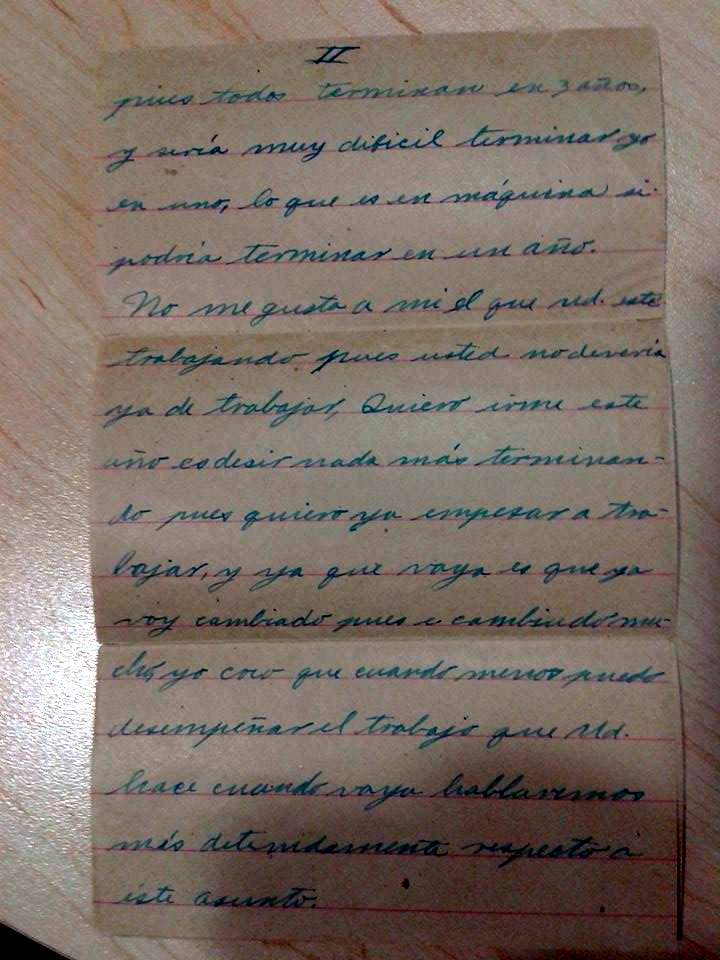 II
pues todos terminan en 3 años,
y sería muy dificil terminar yo
en uno, lo que es en máquina si
podría terminar en un año.
No me gusta a mi el que ud. esté
trabajando pues usted no devería
ya de trabajar, Quiero irme este
año es desir nada más terminan-
do pues quiero ya empesar a tra-
bajar, y ya que vaya es que ya
voy cambiado pues e cambiado mu-
cho, yo creo que cuando menos puedo
desempeñar el trabajo que Ud.
hace cuando vaya hablaremos
más detenidamente respecto a
éste asunto.